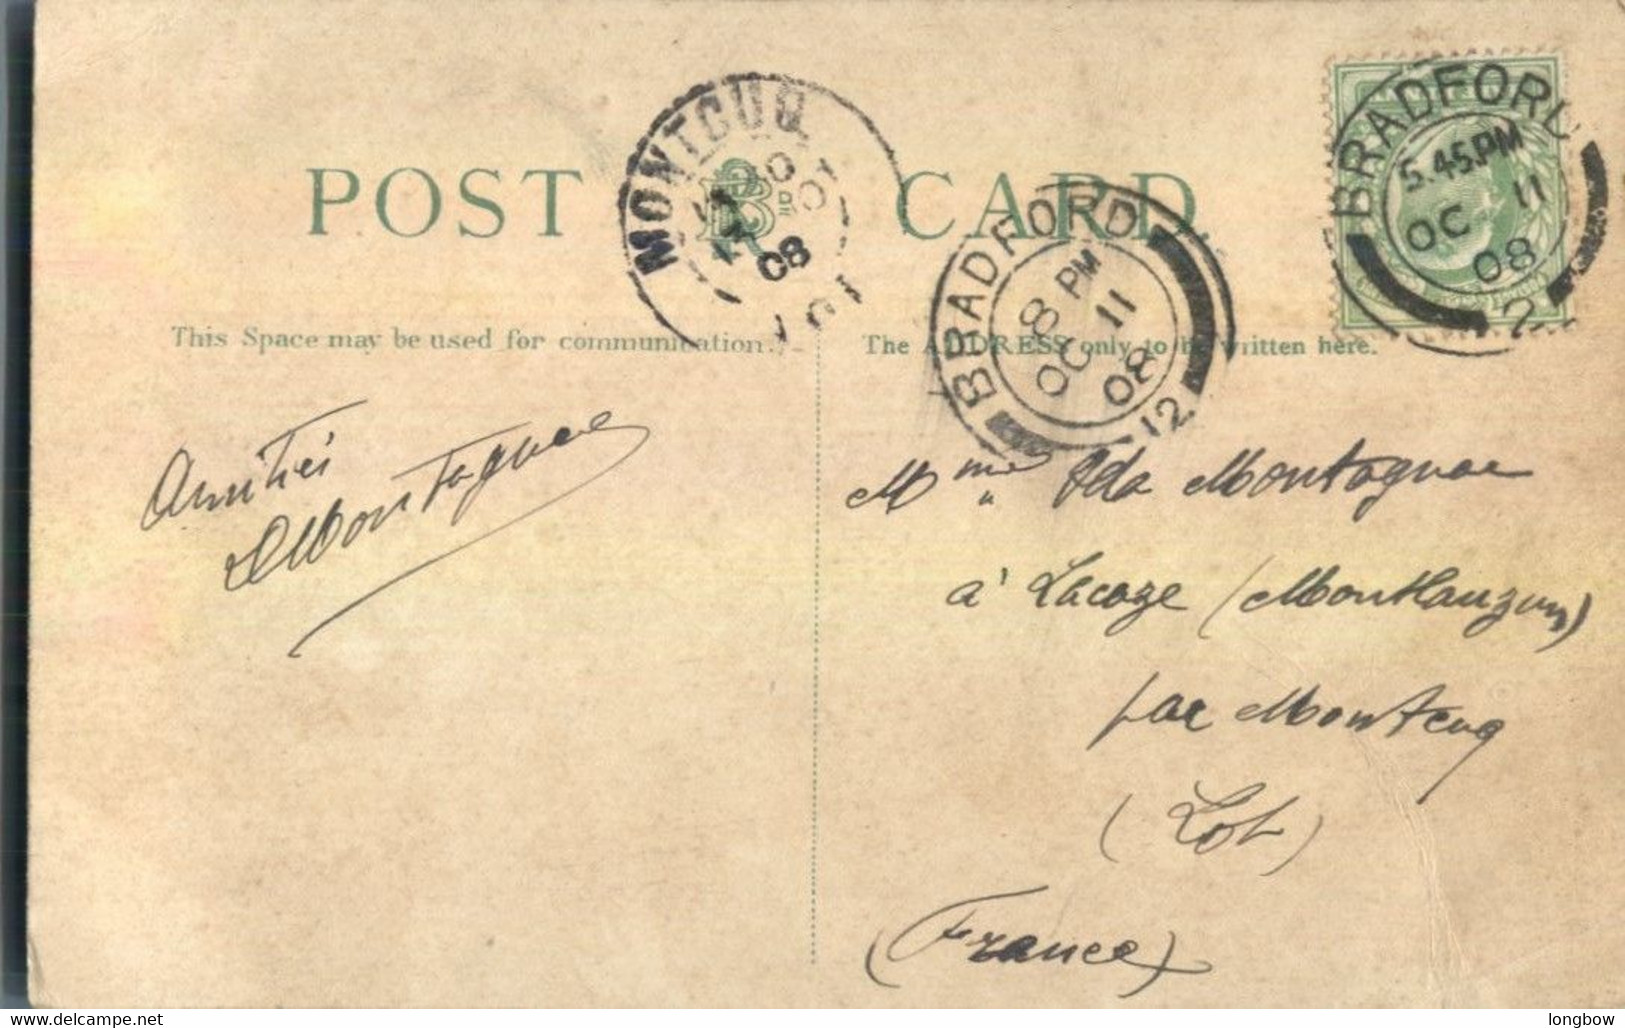 POST CARD
MONTCUQ
08
LOT
BRADFORD
8 PM
OC 11
08
12
BRADFORD
5.45.PM
OC 11
08
2
This Space may be used for communication.
The ADDRESS only to be written here.
Amitiés
Montagnac
Mme Montagnac
à Lacoze (Montlauzun)
par Montcuq
(Lot)
(France)
www.delcampe.net
longbow